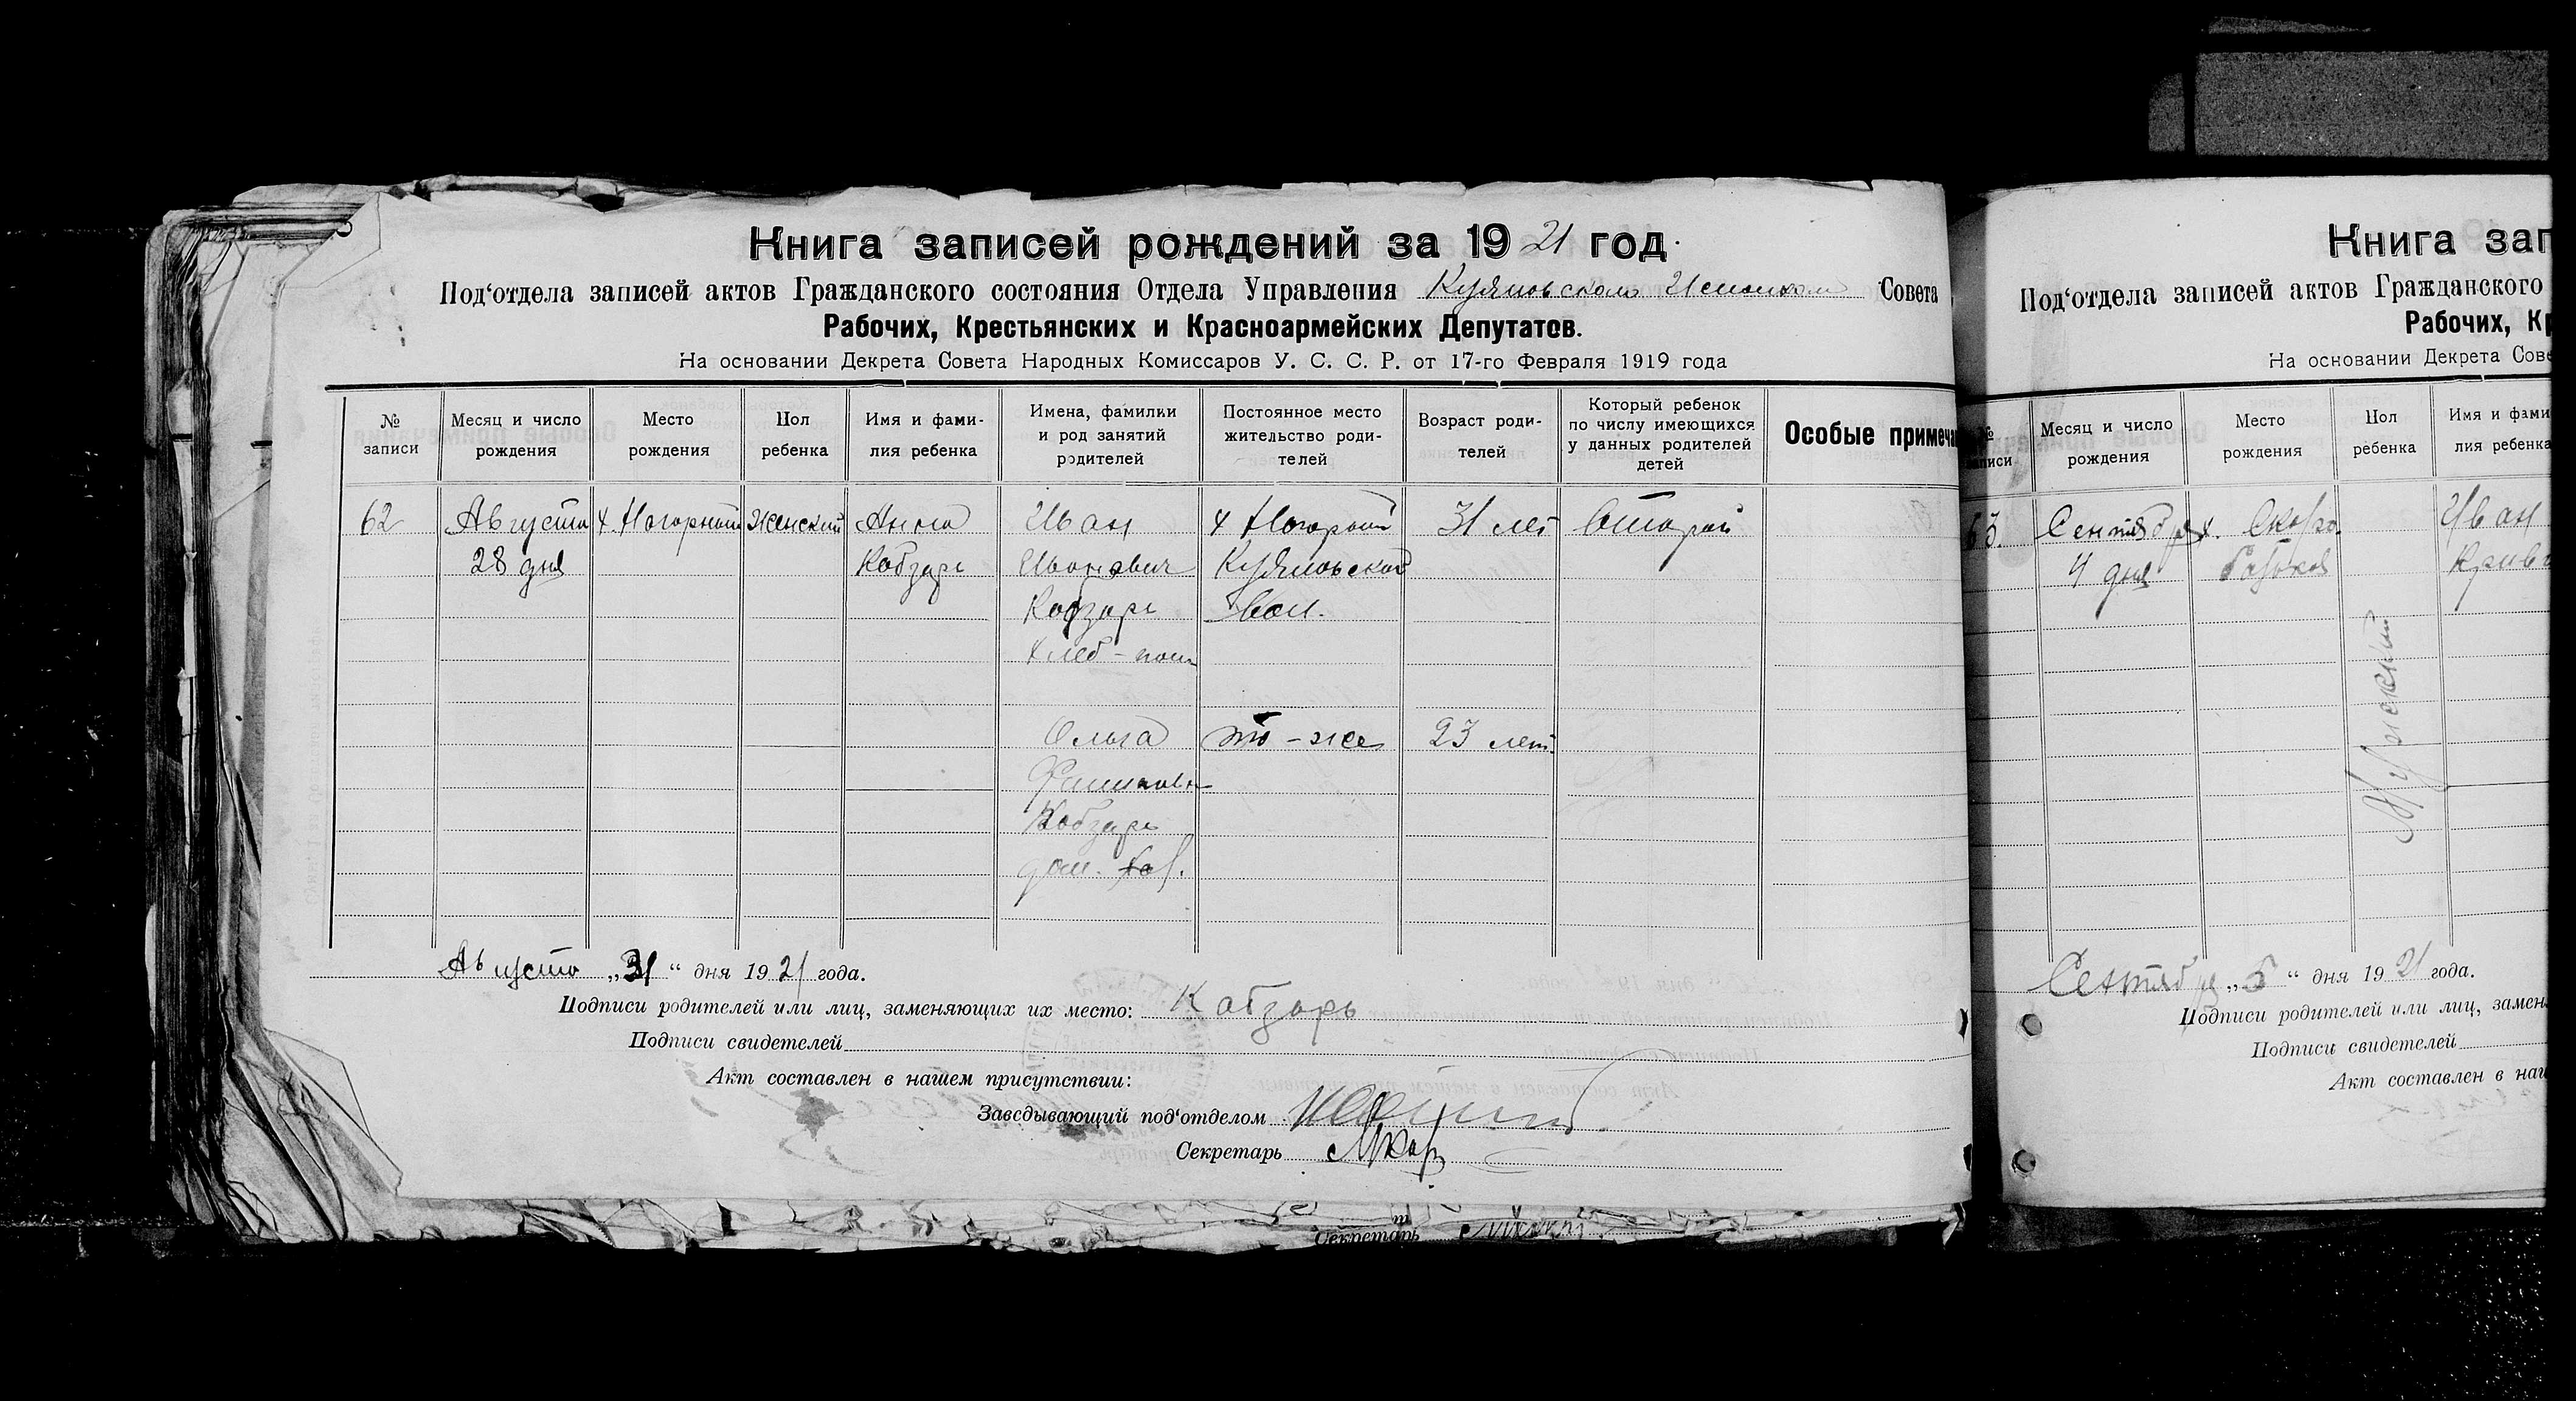 Книга записей рождений за 1921 год.
Под‘отдела записей актов Гражданского состояния Отдела Управления Совета
Рабочих, Крестьянских и Красноармейских Депутатов.
На основании Декрета Совета Народных Комиссаров У. С. С. Р. от 17-го Февраля 1919 года
№ записи
Месяц и число рождения
Место рождения
Пол ребенка
Имя и фами-
лия ребенка
Имена, фамилки
и род занятий
родителей
Постоянное место
жительство роди-
телей
Возраст роди-
телей
Который ребенок
по числу имеющихся
у данных родителей
детей
Особые примеча
62 Августа Женский Анна Иван 31 лет Второй
28 дня Кобзарь Иванович
Кобзарь Вол.
Ольга то-же 23 лет
Кобзарь
Августа „31“ дня 1921 года.
Подписи родителей или лиц, заменяющих их место: Кобзарь
Подписи свидетелей
Акт составлен в нашем присутствии:
Заведывающий под‘отделом
Секретарь
Секретарь
Книга зап
Под‘отдела записей актов Гражданского
Рабочих, Кр
На основании Декрета Сове
№
записи
Месяц и число
рождения
Место
рождения
Пол
ребенка
Имя и фами
лия ребенка
63. Сентября Иван
4 дня
Мужской
Сентября „5“ дня 1921 года.
Подписи родителей или лиц, замен
Подписи свидетелей
Акт составлен в наш